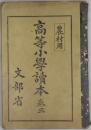 農村用
高等小學讀本 卷二
文部省